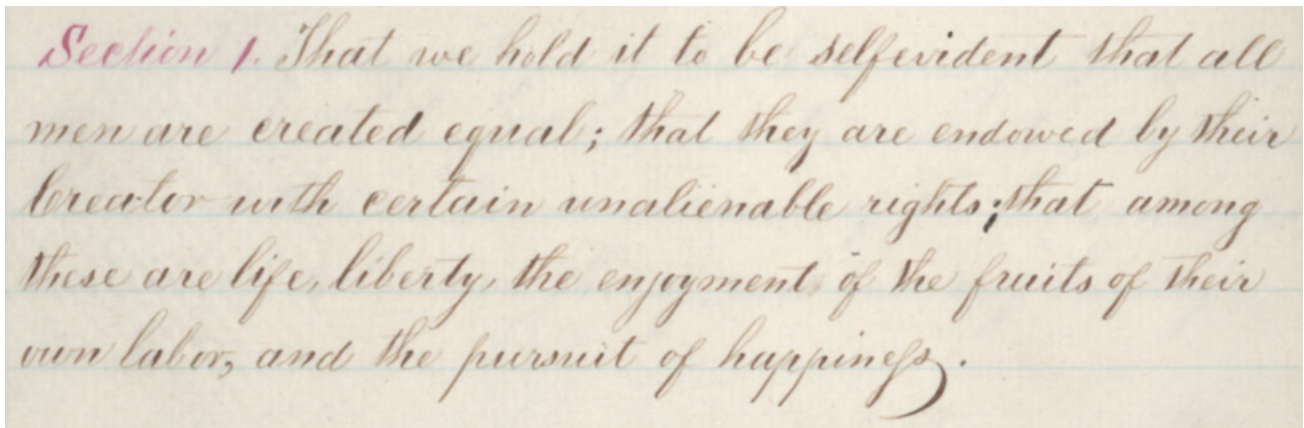 Section 1. That we hold it to be selfevident that all
men are created equal; that they are endowed by their
Creator with certain unalienable rights; that among
these are life, liberty, the enjoyment of the fruits of their
own labor, and the pursuit of happiness.